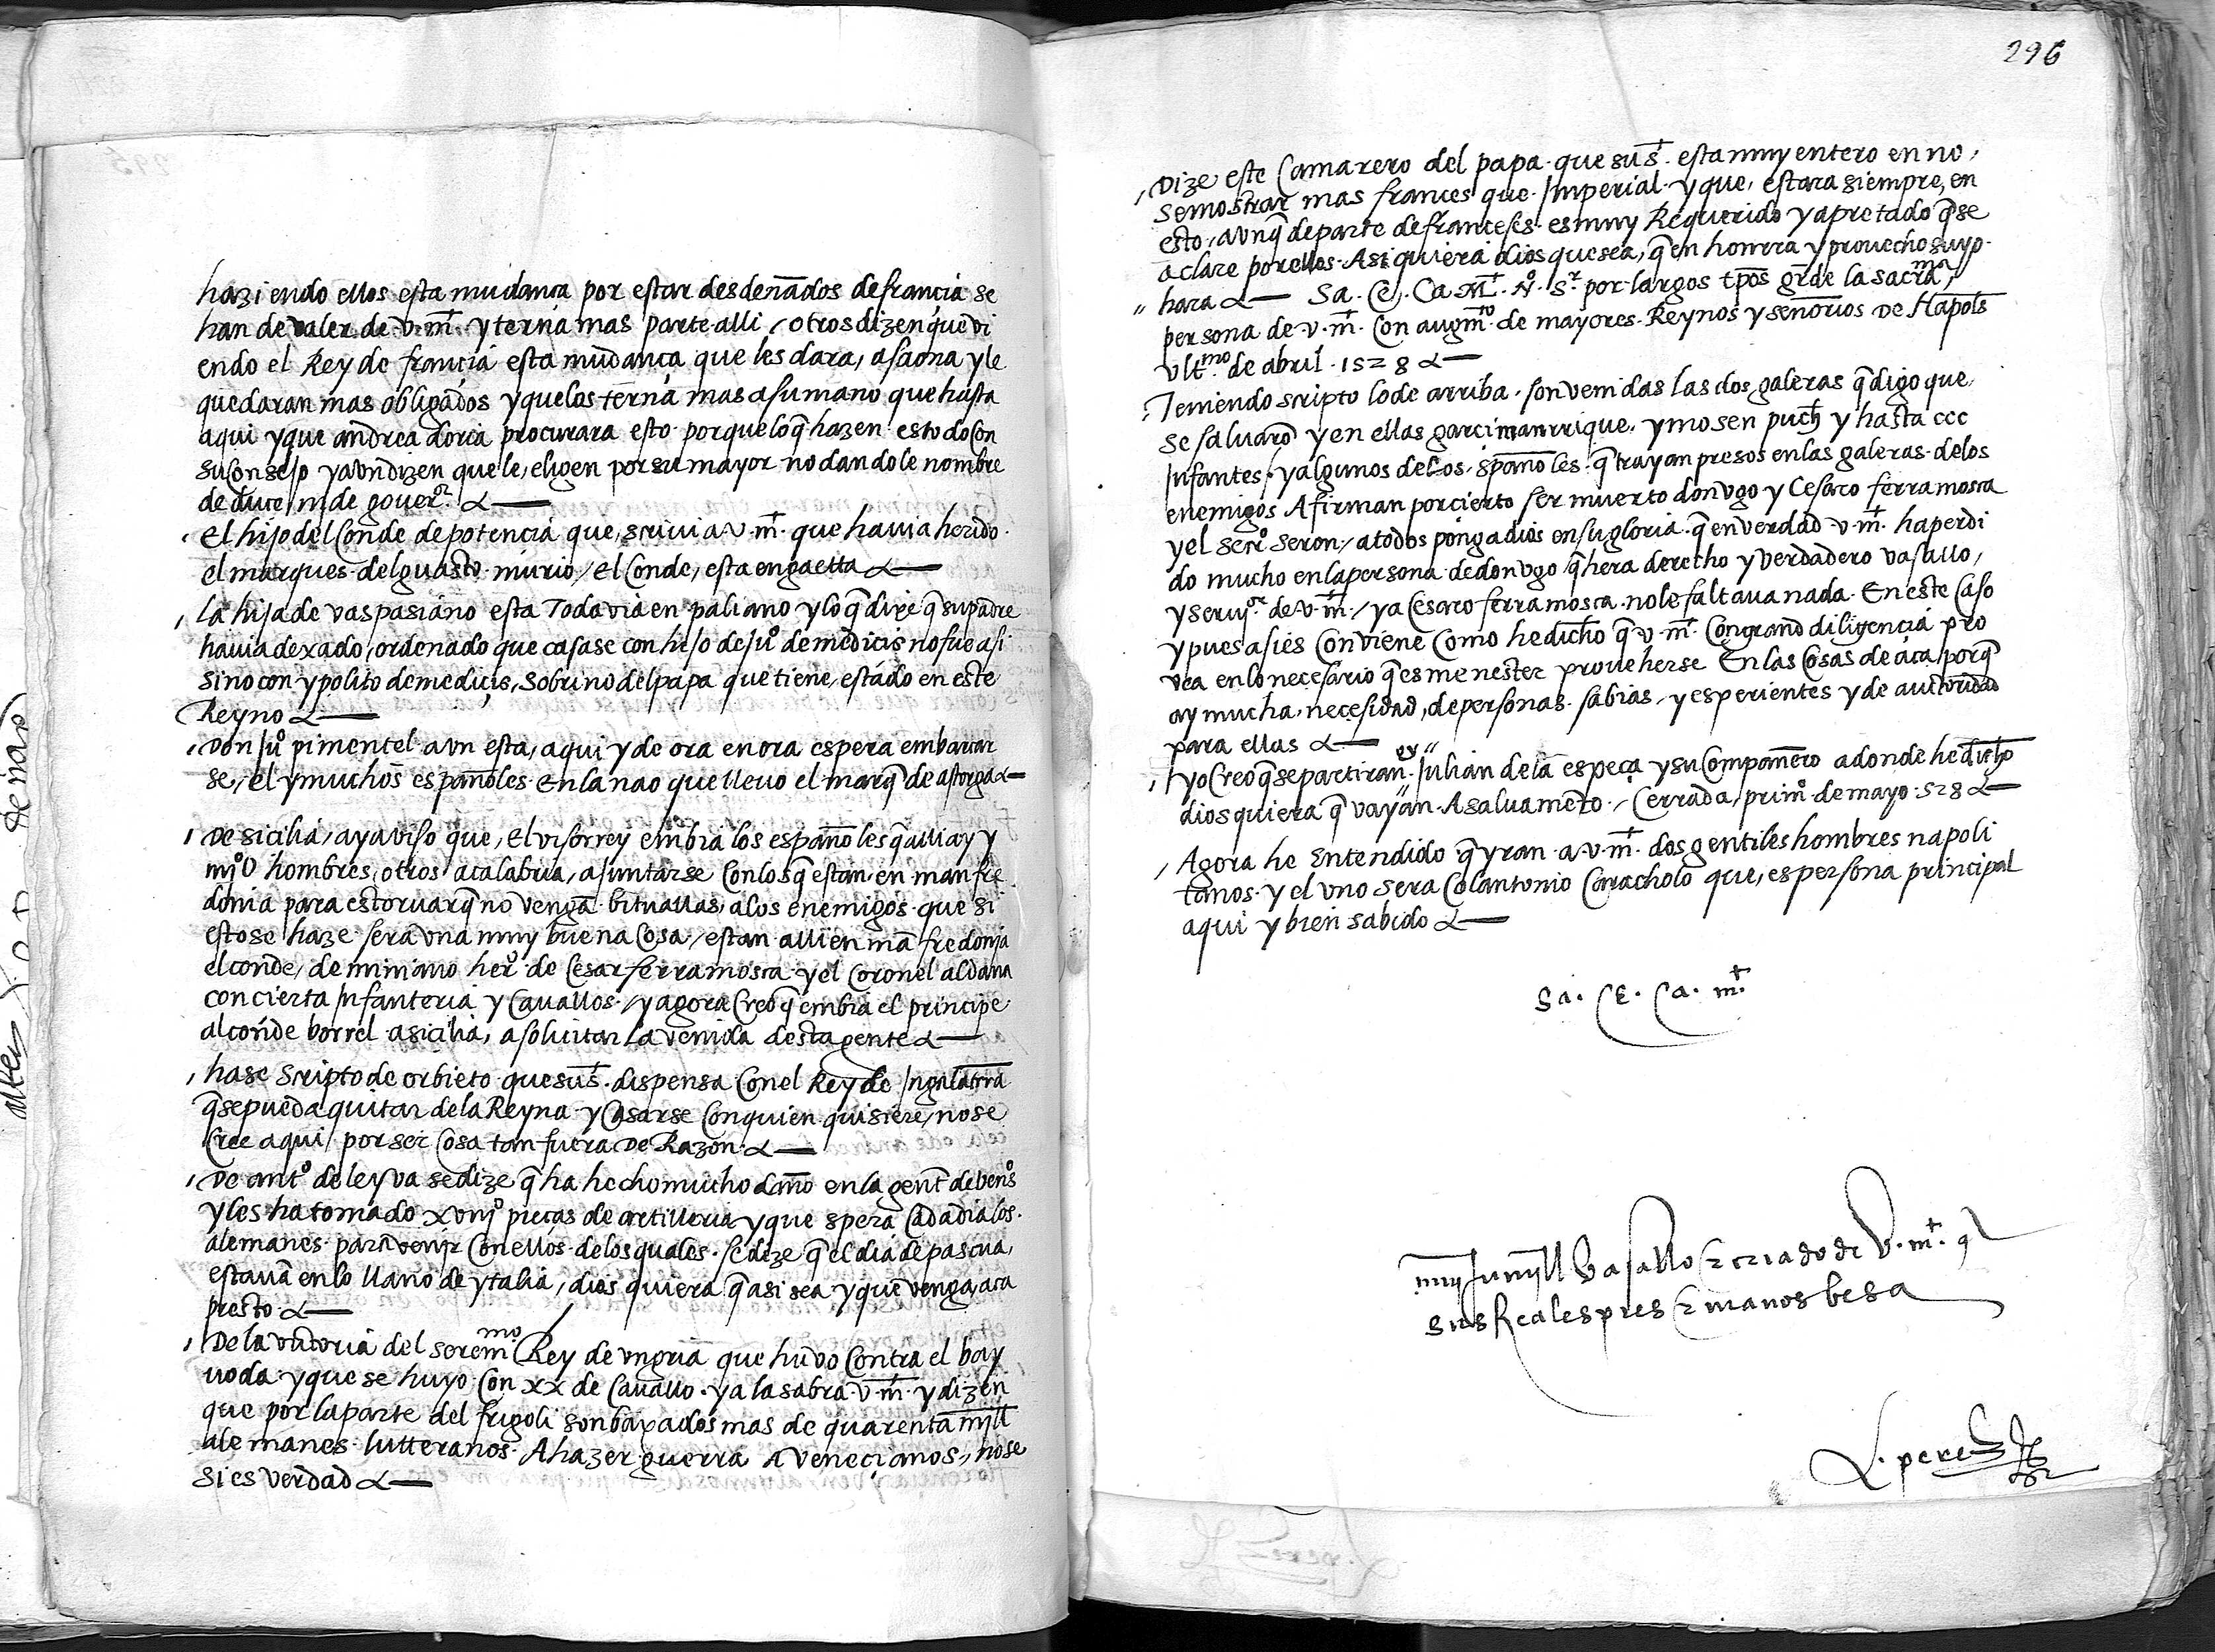 haziendo ellos esta mudança por estar desdeñados de françia se
han de valer de v. mt. y terna mas parte alli / otros dizen que vi
endo el Rey de françia esta mudança que les dara, a saona y le
quedaran mas obligados y que los terna mas a su mano que hasta
aqui y que andrea doria procurara esto porque lo q̃ hazen es todo con
su consejo y avn dizen que le, eligen por su mayor no dandole nombre
de duce nj de gouer.or
El hijo del Conde de potencia que, scriui a v. mt. que hauia herido
el marques del guasto murio / el Conde, esta en gaetta
la hija de vaspasiano esta Todavia en paliano y lo q̃ dixe q̃ su padre
hauia dexado, ordenado que casase con hijo de juº de medicis no fue asi
sino con ypolito de mediçis, sobrino del papa que tiene, estado en este
Reyno
Don juº pimentel avn esta, aqui y de ora en ora espera embarcar
se, el y muchos españoles En la nao que lleuo el marq̃ de astorga
De sicilia, ay aviso que, el visorrey embia los españoles q̃ alli ay y
mjº V hombres, otros a calabria, a juntarse Con los q̃ estan en manfre
donia para estoruar q̃ no venga bituallas, a los enemigos que si
esto se haze sera vna muy buena Cosa / estan alli en mãfredonja
el conde, de miniano herº de Cesar ferramosca y el Coronel aldana
con cierta Infanteria y Cauallos / y agora Creo q̃ embia el principe
al conde borrel a sicilia, a soliçitar la venida desta gente
hase scripto de orbieto que su st. dispensa Con el Rey de Ingalaterra
q̃ se pueda quitar de la Reyna y Casarse Con quien quisiere, no se
Cree aqui / por ser Cosa tan fuera De Razon
De antº de leyva se dize q̃ ha hecho mucho daño en la gent de venos
y les ha tomado xviijº pieças de artilleria y que spera Cada dia los
alemanes para venir Con ellos de los quales se dize q̃ el dia de pascua,
estauã en lo llano de ytalia, dios quiera q̃ asi sea y que venga aca
presto
De la victoria del seremmo Rey de vngria que huvo Contra el bay
uoda y que se huyo Con xx de Cauallo ya la sabra v. mt. y dizen
que por la parte del frigoli son baxados mas de quarenta mjll
alemanes lutteranos A hazer guerra A veneçianos, no se
si es verdad
296
Dize este Camarero del papa que su st. esta muy entero en no
se mostrar mas frances que Imperial y que, estara siempre, en
esto, avnq̃ de parte de françeses es muy Requerido y apretado q̃ se
aclare por ellos. Asi quiera dios que sea, q̃ en honrra y prouecho suyo
hara Sa. Ce. Ca. Mt. Nº. Sr. por largos tpos grde la sacrama
persona de v. mt. Con augmto. de mayores Reynos y señorios De Napols
vltmo. de abril 1528
Teniendo scripto lo de arriba son venidas las dos galeras q̃ digo que
se saluarõ y en ellas garcimanrrique, y mosen puch y hasta ccc
Infantes, y algunos de los spañoles q̃ trayan presos en las galeras de los
enemigos Afirman por cierto ser muerto don vgo y Cesaro ferramosca
y el secrº seron / a todos ponga dios en su gloria q̃ en verdad v. mt. ha perdi
do mucho en la persona de don vgo q̃ hera derecho y verdadero vasallo,
y seruor. de v. mt. / y a Cesaro ferramosca no le faltaua nada En este Caso
y pues asi es Conviene Como he dicho q̃ v. mt. Con grand diligençia pro
vea en lo necesario q̃ es menester proueherse En las Cosas de aca, porq̃
ay mucha, necesidad, de personas sabias, y esperientes y de autoridad
para ellas
yo Creo q̃ se partiran oy Julian de la especa y su Compañero a donde he dicho
dios quiera q̃ vayan A saluamẽto / Cerrada, primº de mayo 528
Agora he Entendido q̃ yran a v. mt. dos gentiles hombres napoli
tanos y el vno sera Colantonio Caracholo que, es persona principal
aqui y bien sabido
Sa. Ce. Ca. mt.
muy humyll vasallo & criado de V. mt. q
sus Reales pies & manos besa
L. perez